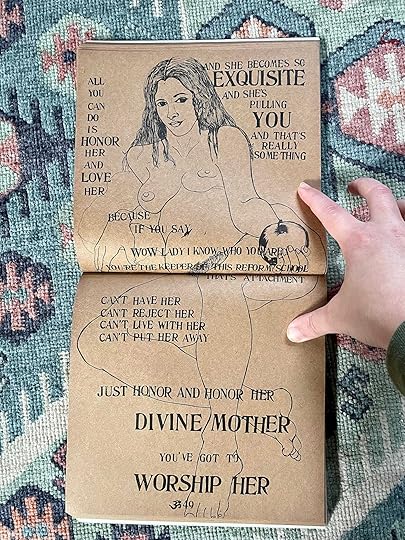 ALL
YOU
CAN
DO
IS
HONOR
HER
AND
LOVE
HER
AND SHE BECOMES SO
EXQUISITE
AND SHE'S
PULLING
YOU
AND THAT'S
REALLY
SOMETHING
BECAUSE
IF YOU SAY
WOW LADY I KNOW WHO YOU ARE
YOU'RE THE KEEPER OF THIS REFORM SCHOOL
THAT'S ATTACHMENT
CAN'T HAVE HER
CAN'T REJECT HER
CAN'T LIVE WITH HER
CAN'T PUT HER AWAY
JUST HONOR AND HONOR HER
DIVINE MOTHER
YOU'VE GOT TO
WORSHIP HER
ॐ 49